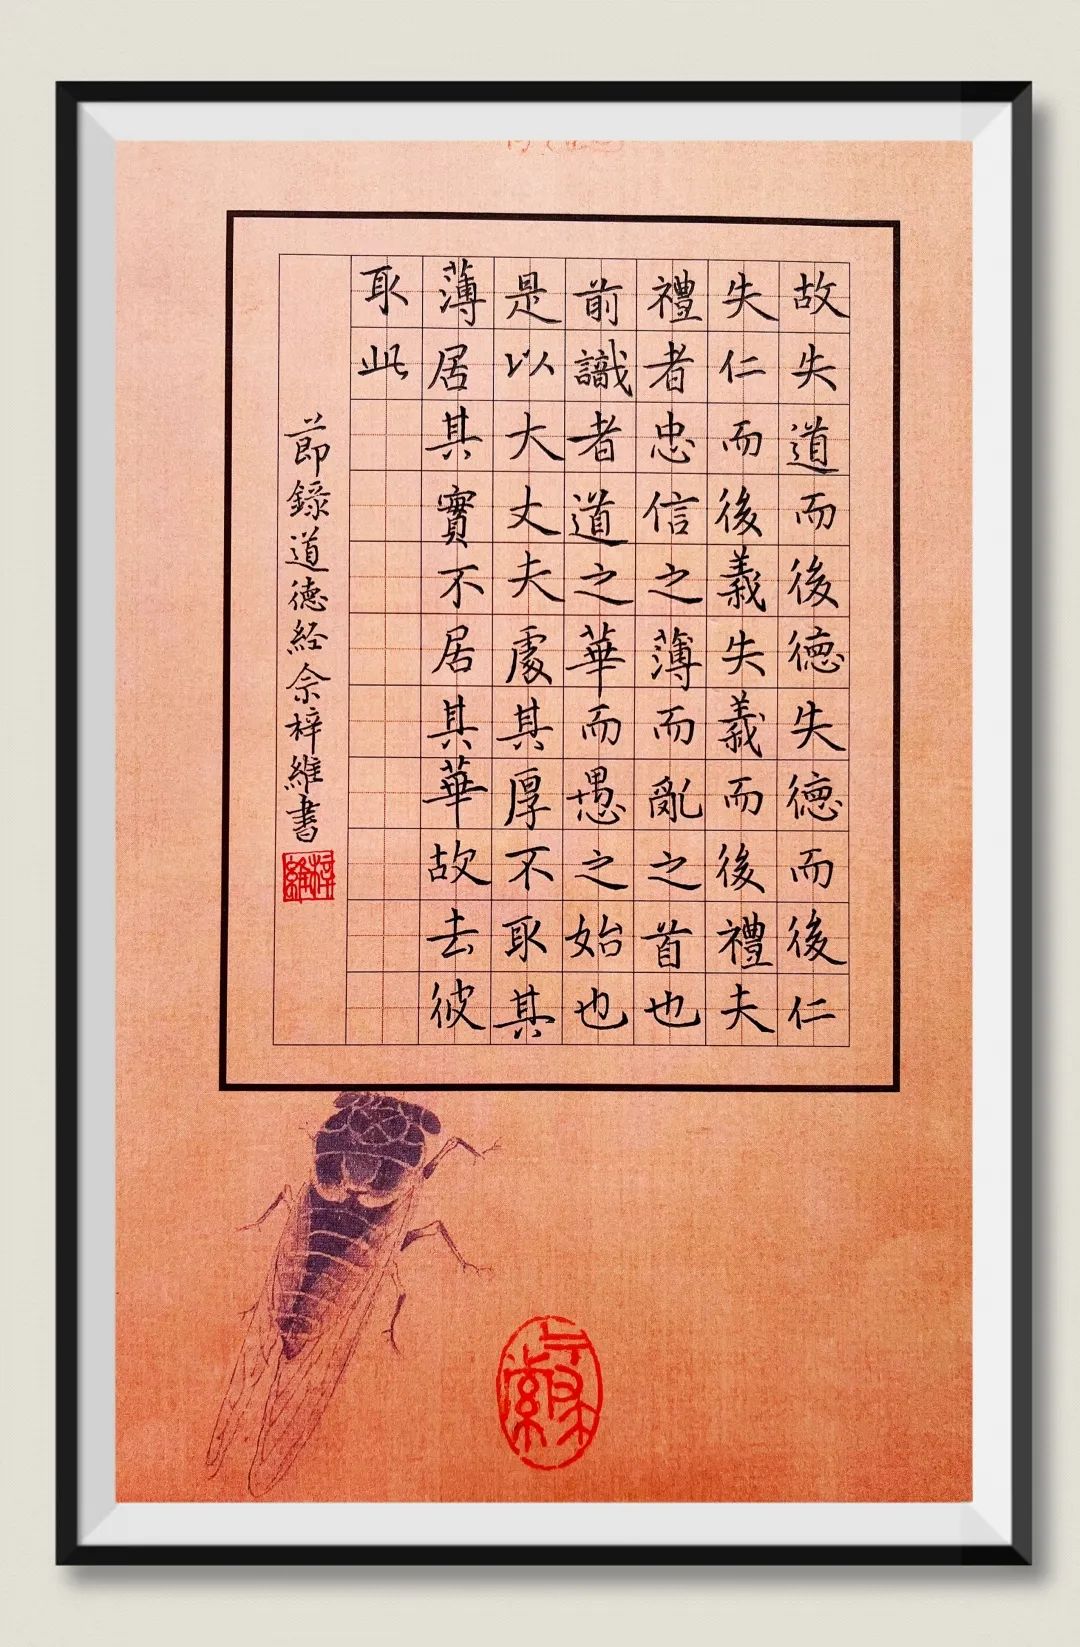 故失道而後德失德而後仁
失仁而後義失義而後禮夫
禮者忠信之薄而亂之首也
前識者道之華而愚之始也
是以大丈夫處其厚不取其
薄居其實不居其華故去彼
取此
節錄道德経佘梓維書
梓維